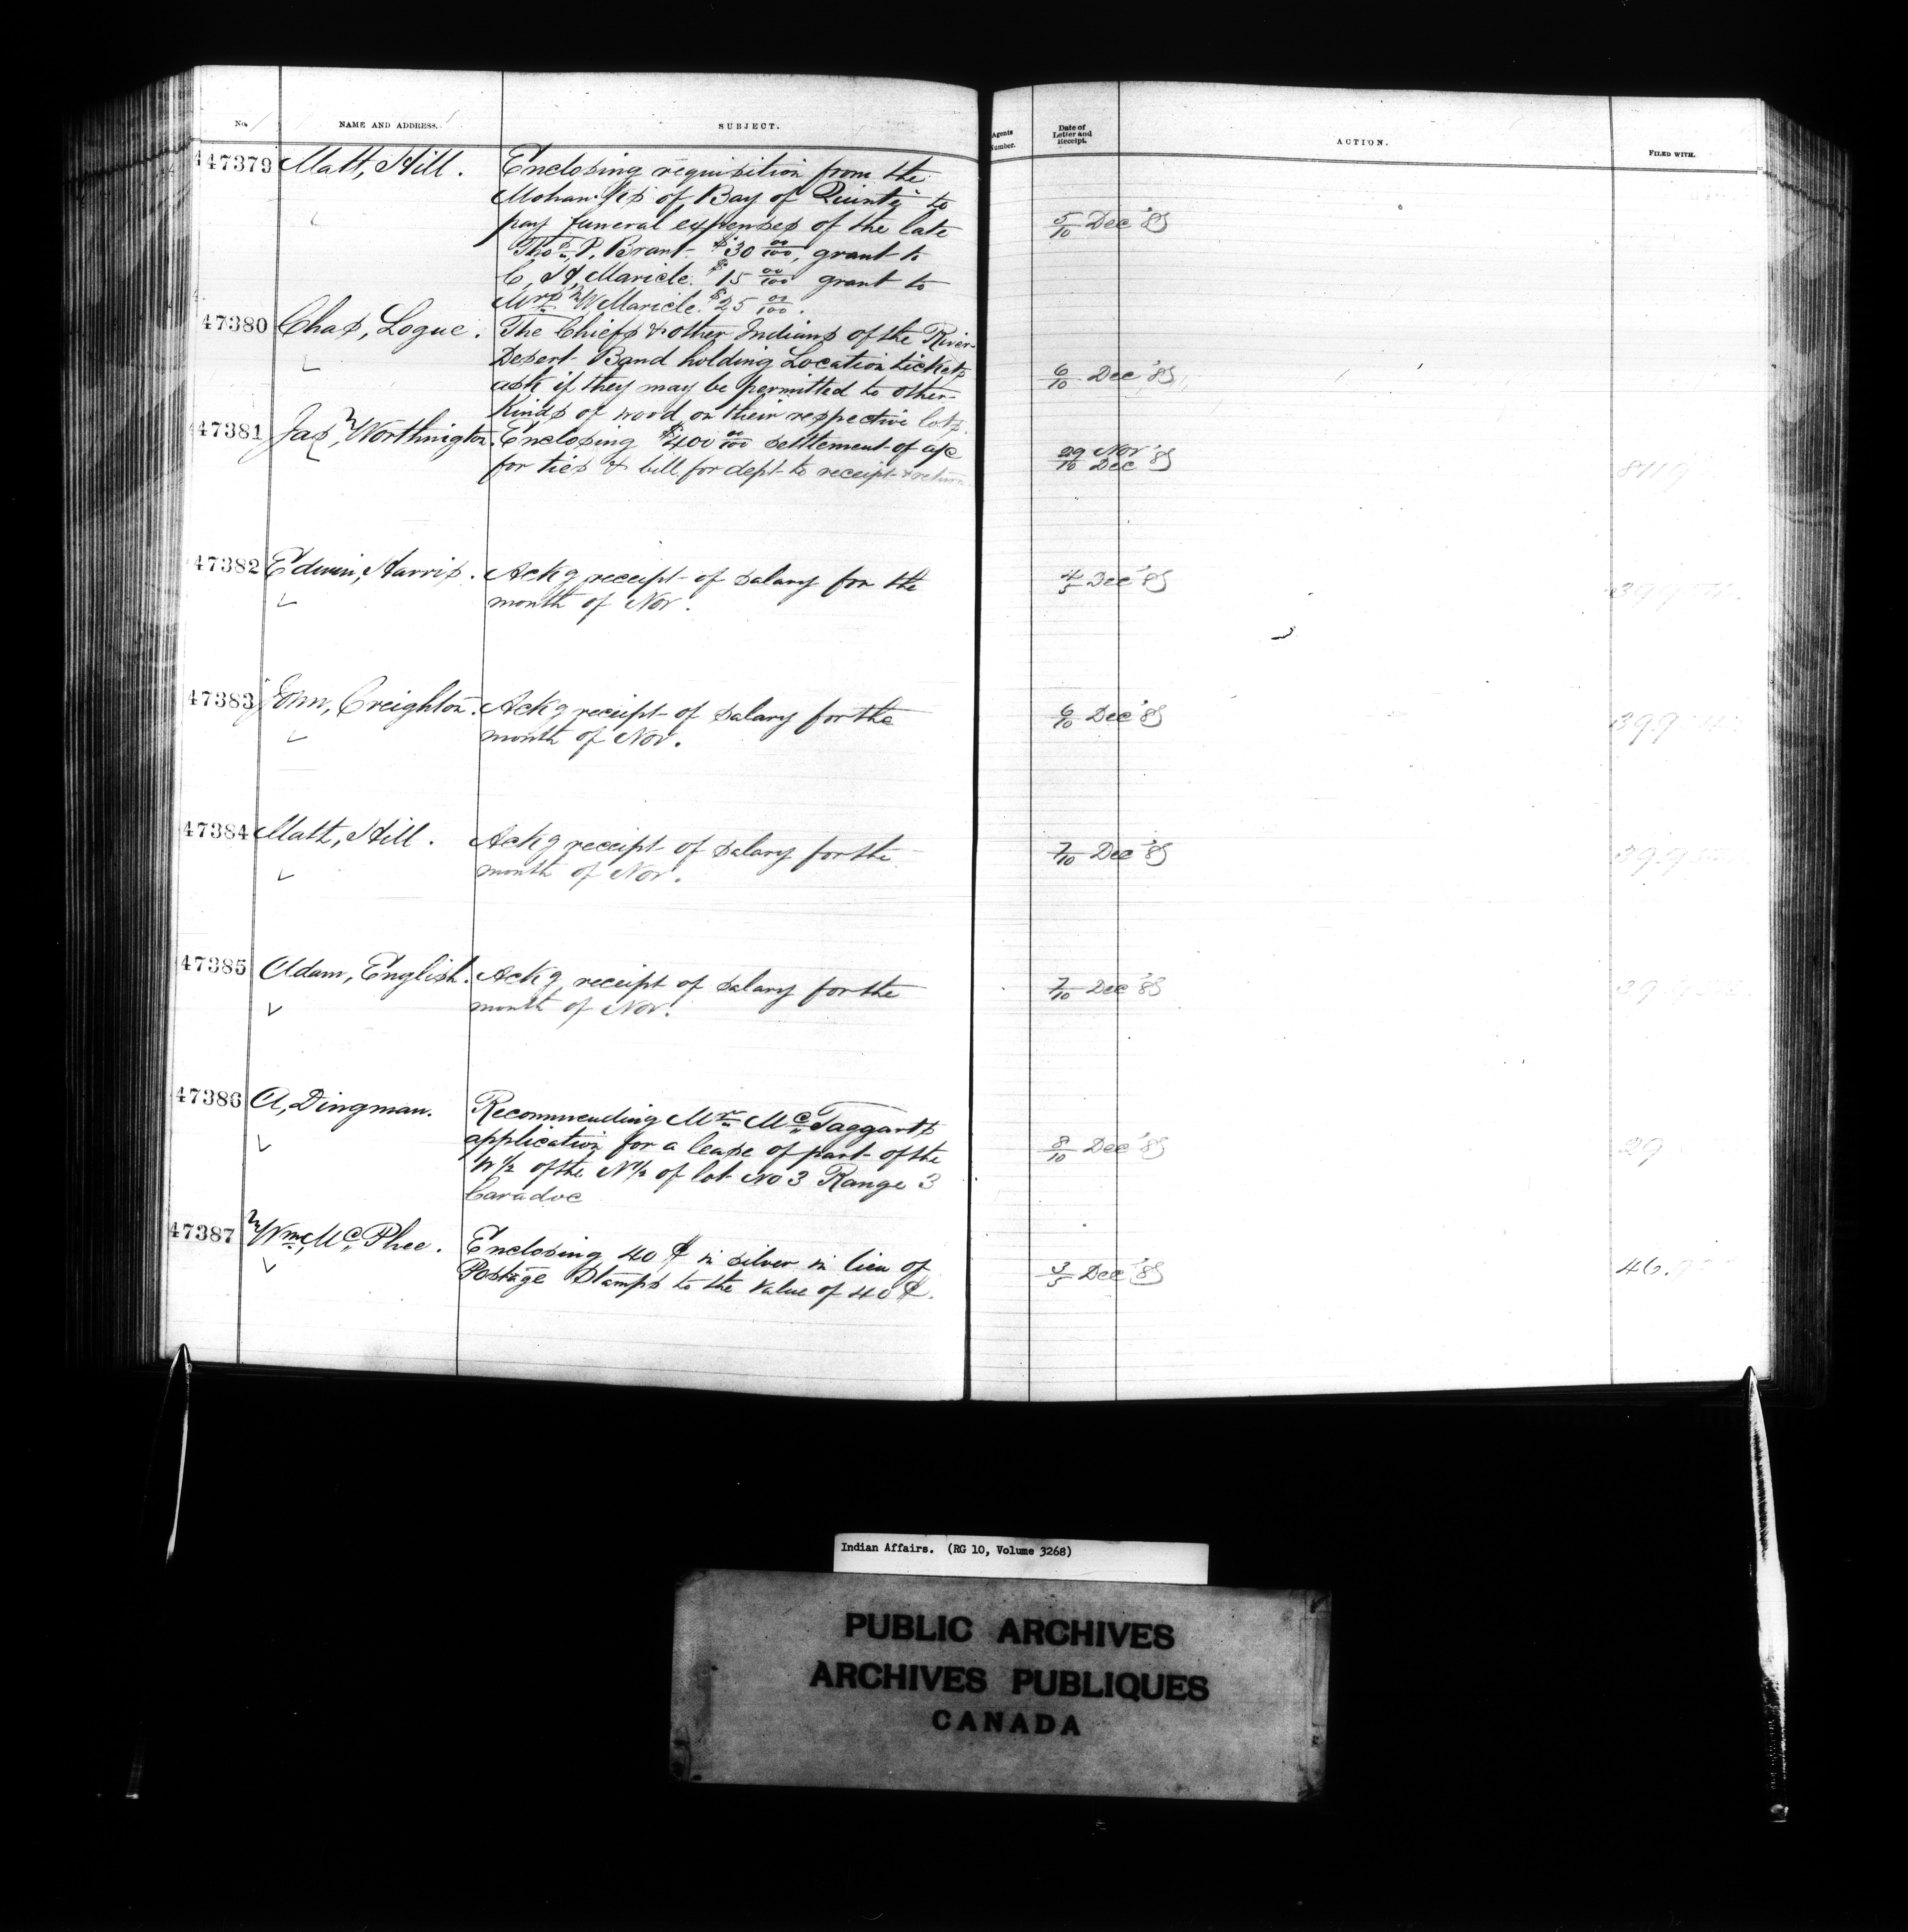 No.
NAME AND ADDRESS.
SUBJECT.
Agents Number.
Date of Letter and Receipt.
ACTION.
FILED WITH.
47379 Matt, Hill. Enclosing requisition from the
Mohawks of Bay of Quinté to
pay funeral expenses of the late
Thos. P. Brant. $30 00/100, grant to
C, H, Maricle. $15 00/100 grant to
Mrs W Maricle. $25 00/100.
5/10 Dec '85
47380 Chas, Logue. The Chiefs & other Indians of the River
Desert Band holding Location tickets
ask if they may be permitted to other
kinds of wood on their respective lots.
6/10 Dec '85
47381 Jas, Worthington. Enclosing $400 00/100 settlement of a/c
for ties & bill for dept to receipt & return
29 Nov
10 Dec '85
8119
47382 Edwin, Harris. Ackg receipt of salary for the
month of Nor.
4/5 Dec '85
47383 John, Creighton. Ackg receipt of salary for the
month of Nov.
6/10 Dec '85
47384 Matt, Hill. Ackg receipt of salary for the
month of Nov.
7/10 Dec '85
47385 Adam, English. Ackg receipt of salary for the
month of Nov.
7/10 Dec '85
47386 A, Dingman. Recommending Mr McTaggarts
application for a lease of part of the
W 1/2 of the N 1/2 of lot No 3 Range 3
Caradoc
8/10 Dec '85
29
47387 Wm, McPhee. Enclosing 40 ¢ in silver in lieu of
Postage Stamps to the value of 40 ¢.
3/5 Dec '85
46.
Indian Affairs. (RG 10, Volume 3268)
PUBLIC ARCHIVES
ARCHIVES PUBLIQUES
CANADA